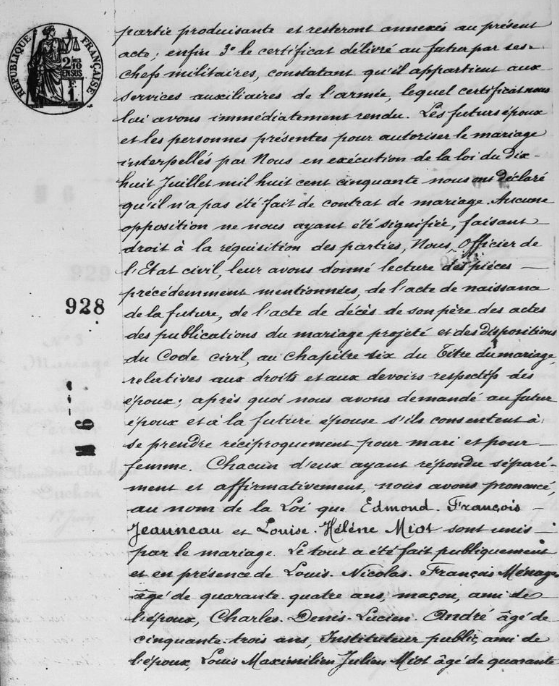 partie produisante et resteront annexés au présent
acte; enfin 3° le certificat délivré au futur par ses
chefs militaires, constatant qu'il appartient aux
services auxiliaires de l'armée, lequel certificat nous
lui avons immédiatement rendu. Les futurs époux
et les personnes présentes pour autoriser le mariage
interpellés par Nous en exécution de la loi du dix-
huit Juillet mil huit cent cinquante nous ont déclaré
qu'il n'a pas été fait de contrat de mariage. Aucune
opposition ne nous ayant été signifiée, faisant
droit à la réquisition des parties, Nous, Officier de
l'État civil, leur avons donné lecture des pièces
précédemment mentionnées, de l'acte de naissance
de la future, de l'acte de décès de son père des actes
des publications du mariage projeté et des dispositions
du Code civil, au chapitre six du Titre du mariage
relatives aux droits et aux devoirs respectifs des
époux; après quoi nous avons demandé au futur
époux et à la future épouse s'ils consentent à
se prendre réciproquement pour mari et pour
femme. Chacun d'eux ayant répondu séparé-
ment et affirmativement, nous avons prononcé
au nom de la Loi que Edmond. François-
Jeauneau et Louise. Hélène Miot sont unis
par le mariage. Le tout a été fait publiquement
et en présence de Louis. Nicolas. François Ménage
âgé de quarante quatre ans, maçon, ami de
l'époux, Charles. Denis. Lucien. André âgé de
cinquante trois ans, Instituteur public, ami de
l'époux, Louis Maximilien Julien Miot âgé de quarante
RÉPUBLIQUE FRANÇAISE
928
N 6